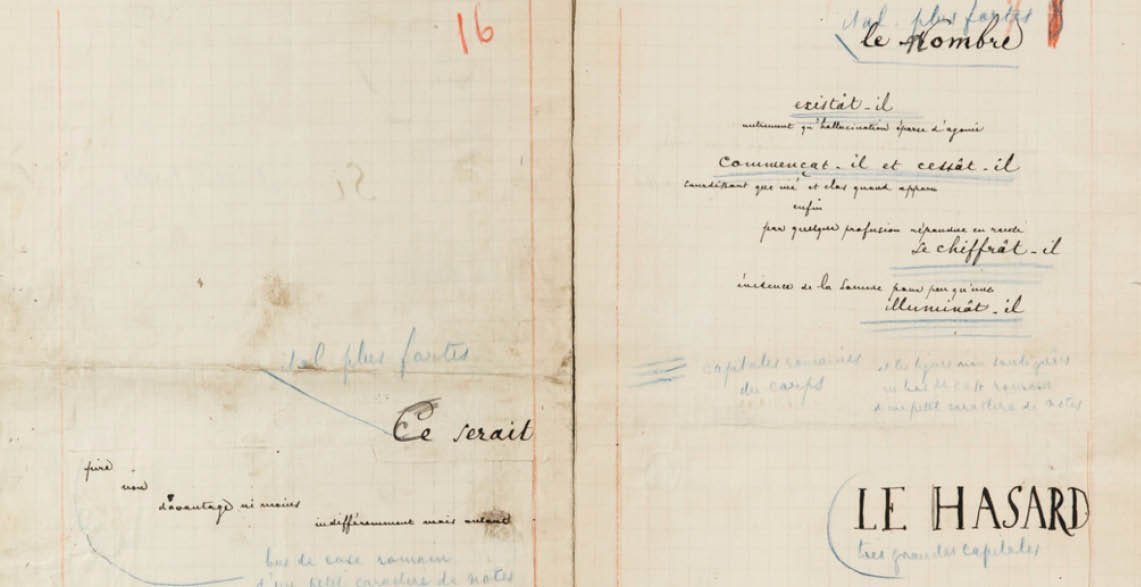 16
ital plus fortes
Ce serait
pire
non
davantage ni moins
indifféremment mais autant
bas de case romain
d'un petit caractère de notes
ital. plus fortes
le Nombre
existât-il
autrement qu'hallucination éparse d'agonie
commençât-il et cessât-il
sourdant que nié et clos quand apparu
enfin
par quelque profusion répandue en rareté
Se chiffrât-il
évidence de la somme pour peu qu'une
illuminât-il
capitales romaines
du corps
et les lignes non soulignées
en bas de case romain
d'un petit caractère de notes
LE HASARD
très grandes capitales